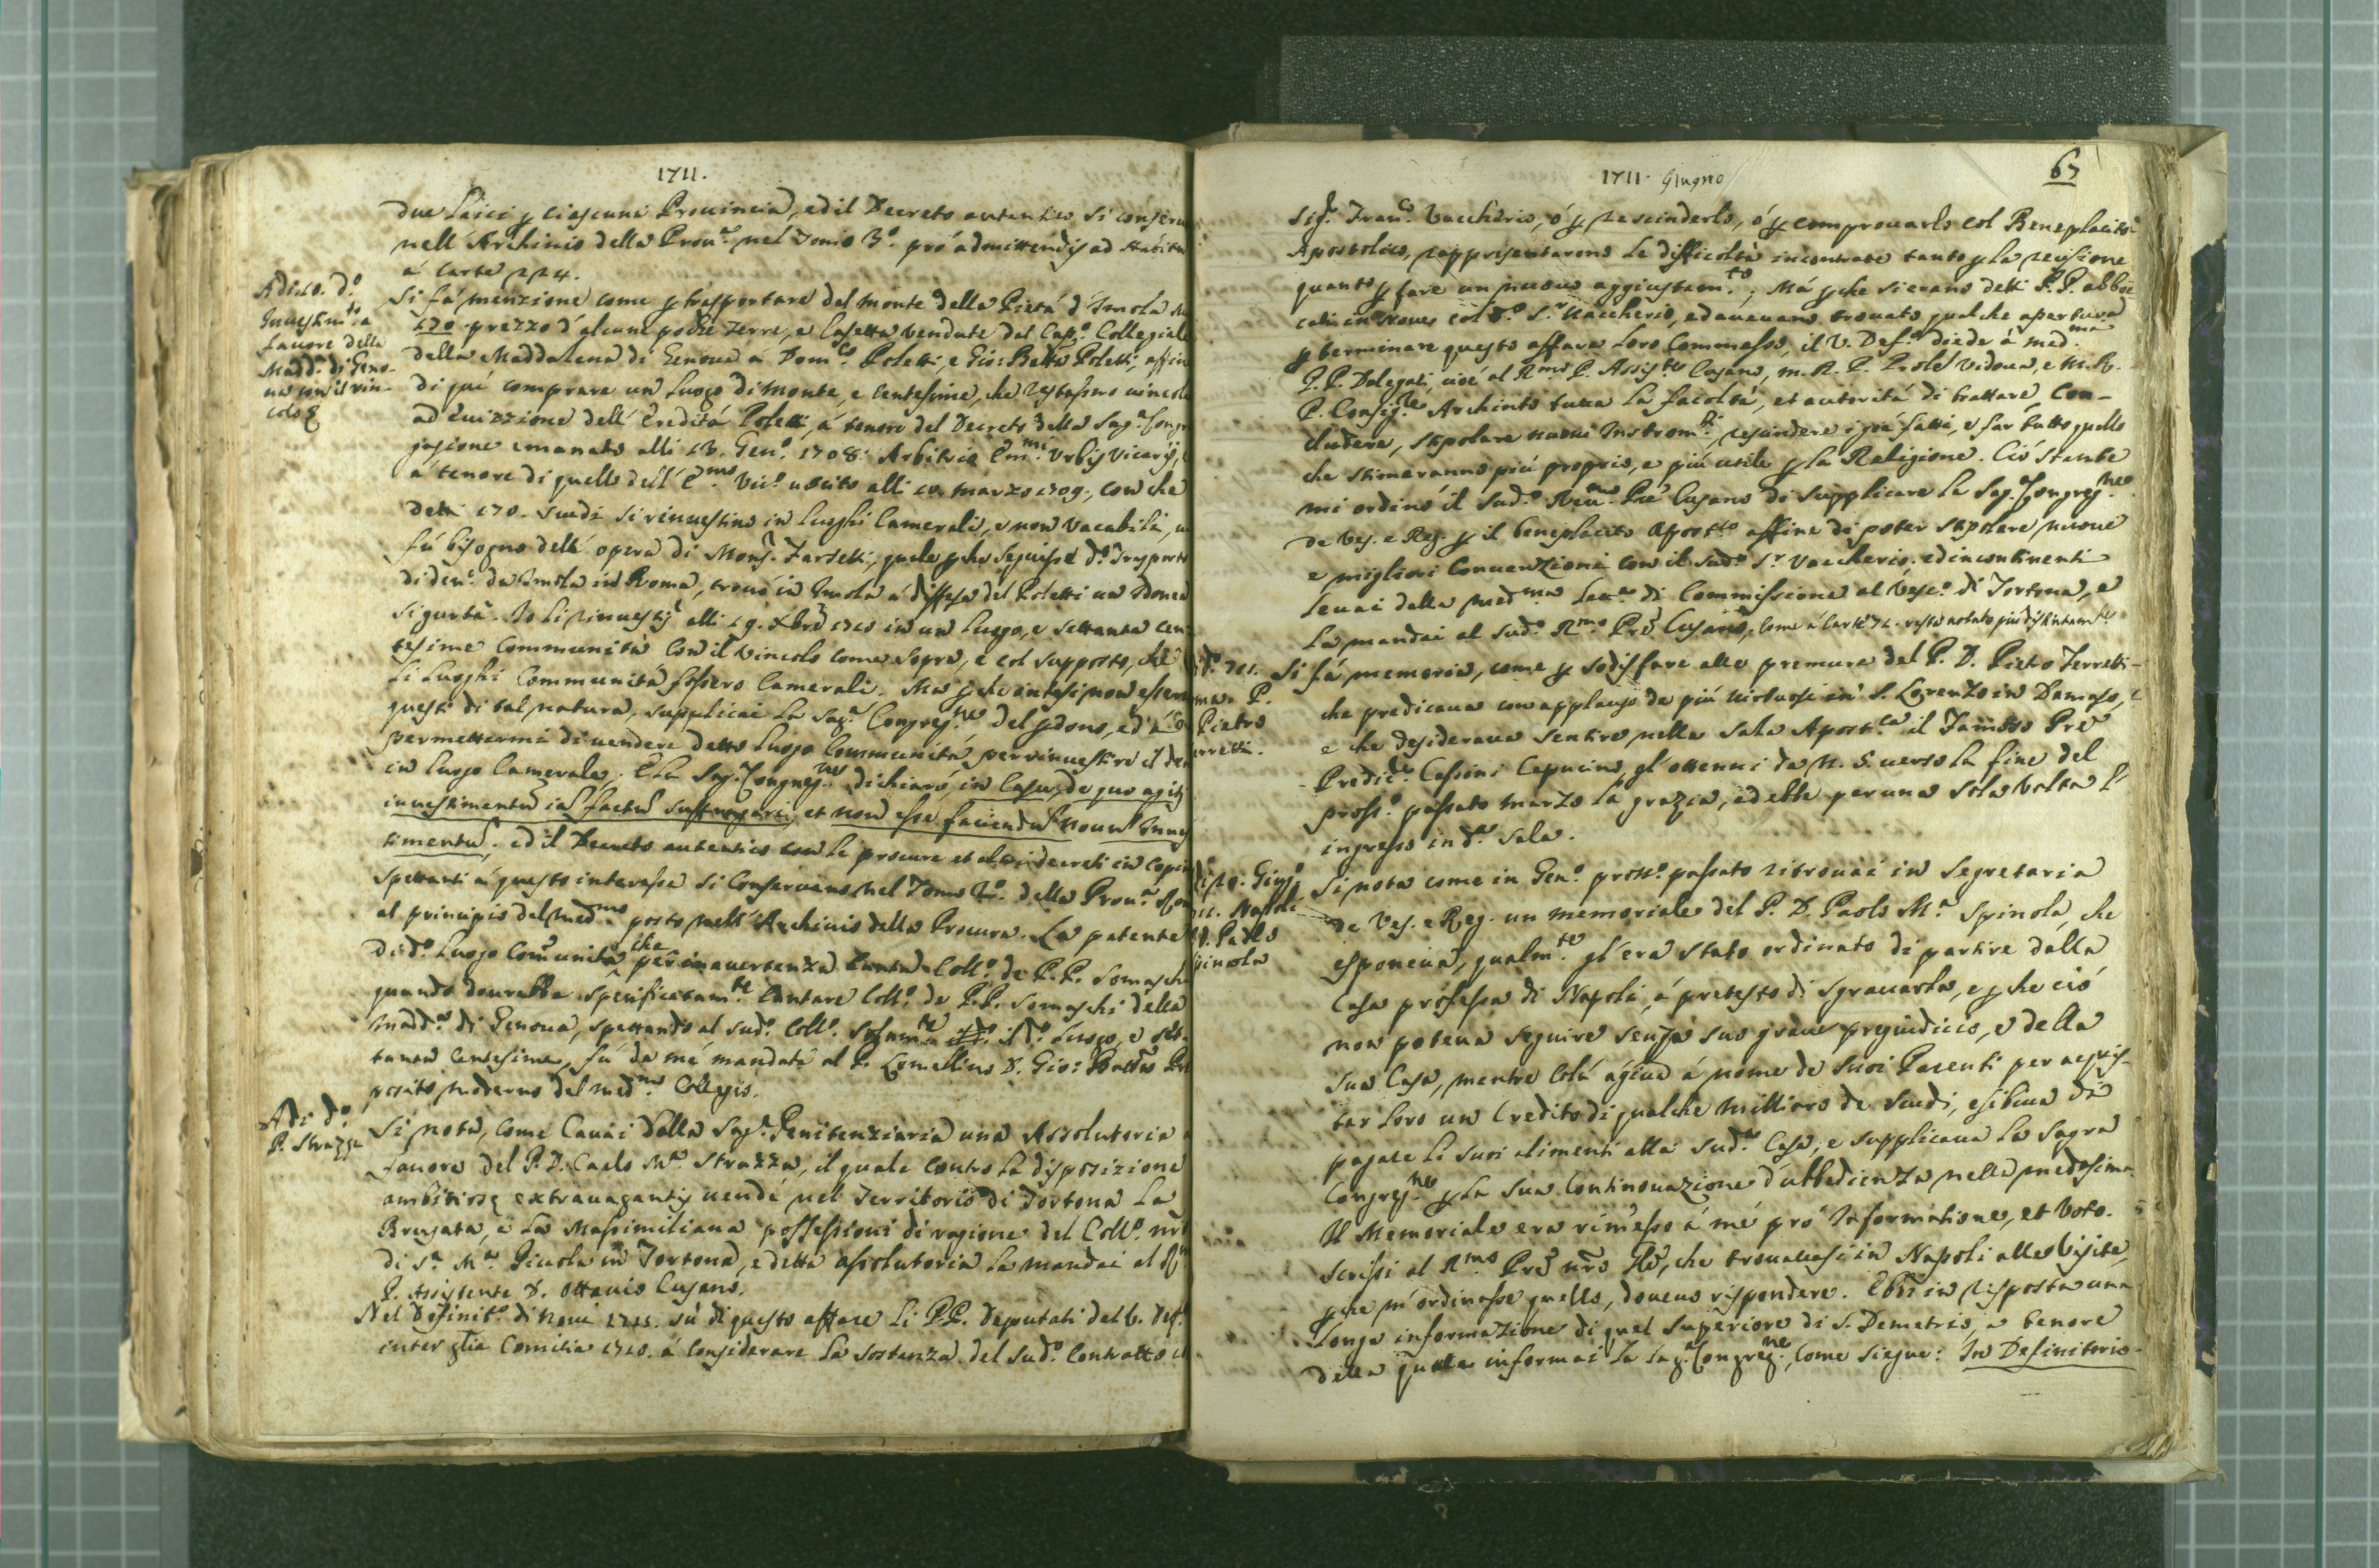 1711.
due laici p ciascuna Provincia, ed il Decreto autentico si conserva
nell' Archivio della Prov.a nel Tomo 3.o pro admittendis ad Habitu
à carte 224.
Adi 10. d.o
Investim.to a
favore della
Madd.a di Geno-
va con il vin-
colo &
Si fà menzione come p trasportare dal monte della Pietà d' Imola
170 prezzo d' alcune poche terre, e Casetta vendute dal Cap.o Collegiale
della Maddalena di Genova a Dom.co Poletti, e Gio: Batta Poletti, affin
di quì comprare un luogo di monte, e centesime, che restassero vincola
ad evizzione dell' Eredità Poletti, à tenore del Decreto della Sag.a Congre
gazione emanato alli 13. Gen.o 1708. Arbitrio Em.mi Urbis Vicarij, e
à tenore di quello dell' E.mo Vic.o uscito alli 10. marzo 1709., con che
detti 170. scudi si rinvestino in luoghi Camerali, e non vacabili,
fù bisogno dell' opera di Mons. Farsetti, quale p che seguisse d.o trasporto
di den.o da Imola in Roma, trovò in Imola a difesa del Poletti un Idonea
sigurtà. Io li rinvestij alli 19. Xbre 1710 in un luogo, e settanta cen
tesime Communità con il vincolo come sopra, e col supposto, che
li luoghi Communità fossero Camerali. Ma p che intesi non essere
questi di tal natura, supplicai la Sag.a Congreg.ne del pdono, ed à
permettermi di vendere detto luogo Communità, per rinvestire il den
in luogo Camerale. E la Sag.a Congreg.ne dichiarò, in Casu, de quo agit
investimentu ia factu suffragari, et non esse faciendu novu Inves
timentu; ed il Decreto autentico con le procure et altri decreti in copia
spettanti à questo interesse si conservano nel Tomo 2.o della Prov.a
al principio del med.mo posto nell' Archivio della Procura. La patente
di d.o luogo Comunità che per inavertenza canta Coll.o de P.P. Somaschi
quando dovrebbe specificatam.te cantare Coll.o de P.P. Somaschi della
Madd.a di Genova, spettando al sud.o Coll.o solam.te il d.o luogo, e set-
tanta centesime, fù da mè mandata al P. Lomellino D. Gio: Batta Pre
posito moderno del med.mo Collegio.
Adi d.o
P. Strazza
Si nota, come Cavai dalla Sag.a Penitenziaria una Assolutoria a
favore del P. D. Carlo M.a Strazza, il quale contro la disposizione
ambitiosę extravagantis vendé nel Territorio di Tortona la
Brugata, e la Massimiliana possessioni di ragione del Coll.o nro
di S.a M.a Picola in Tortona, e detta assolutoria la mandai al
P. Assistente D. Ottavio Cusano.
Nel Definit.o di Novi 1711. sù di questo affare li P.P. Deputati dal V. Def.o
inter gtia Comitia 1710. à considerare la sostanza del sud.o Contratto
1711. Giugno
67
Sig.r Fran.co Vaccherio, ó p rescinderlo, ó p comprovarlo col Beneplacito
Apostolico, rappresentarono le difficoltà incontrate tanto p la recisione
quanto p fare un nuovo aggiustam.to; Má p che si erano detti P.P. abboc
cati in Novi col d.o S.r Vaccherio, ed avevano trovato qualche apertura
p terminare questo affare loro Commesso, il V. Def.o diede à med.mi
P.P. Delegati, cioè al R.mo P. Assis.te Cusano, m. R. P. Prole Vidoua, e M. R.
P. Consig.re Archinto tutta la facoltà, et autorità di trattare, con-
cludere, stipolare nuovi Instrom.ti, rescindere i già fatti, e far tutto quello
che stimeranno più proprio, e più utile p la Religione. Ció stante
mi ordinó il sud.o Rev.mo Pre Cusano di supplicare la Sag. Congreg.ne
de Ves. e Reg. p il beneplacito Apost.co affine di poter stipolare nuove
e migliori Convenzioni con il sud.o S.r Vaccherio. ed incontinenti
levai dalla med.ma lett.a di Commissione al Vesc.o di Tortona, e
la mandai al sud.o R.mo Pre Cusano, come à carte 72. resta notato più distintam.te
d.o 711.
P.
Pietro
rretti.
Si fà memoria, come p sodisfare alle premure del P. D. Pietro Ferretti
che predicava con applauso de più virtuosi in S. Lorenzo in Damaso,
e che desiderava sentire nella Sala Apost.ca il famoso Pre
Predic.e Cassini Capucino, gl' ottenni da N. S. verso la fine del
pross.o passato marzo la grazia, ed ebbe per una sola volta l'
ingresso in d.a Sala.
di 20. Giug.o
Napoli
D. Paolo
pinola
Si nota come in Gen.o pross.o passato ritrovai in Segretaria
de Ves. e Reg. un memoriale del P. D. Paolo M.a Spinola, che
esponeva, qualm.te gl' era stato ordinato di partire dalla
Casa professa di Napoli, à pretesto di sgravarla, e p che ció
non poteva seguire senza suo grave pregiudicio, e della
sua Casa, mentre colà agiva à nome de suoi Parenti per acquis-
tar loro un Credito di qualche milliaro de scudi, esibiva di
pagare li suoi alimenti alla sud.a Casa; e supplicava la Sagra
Congreg.ne p la sua Continovazione d' ubbedienza nella medesima.
Il Memoriale era rimesso à mé pró Informatione, et Voto.
Scrissi al R.mo Pre nro Gle, che trovavasi in Napoli alla Visita,
p che m' ordinasse quello, dovevo rispondere. Ebbi in risposta una
longa informazione di quel Superiore di S. Demetrio, a tenore
della quale informai la Sag.a Congreg.ne, come siegue: In Definitorio